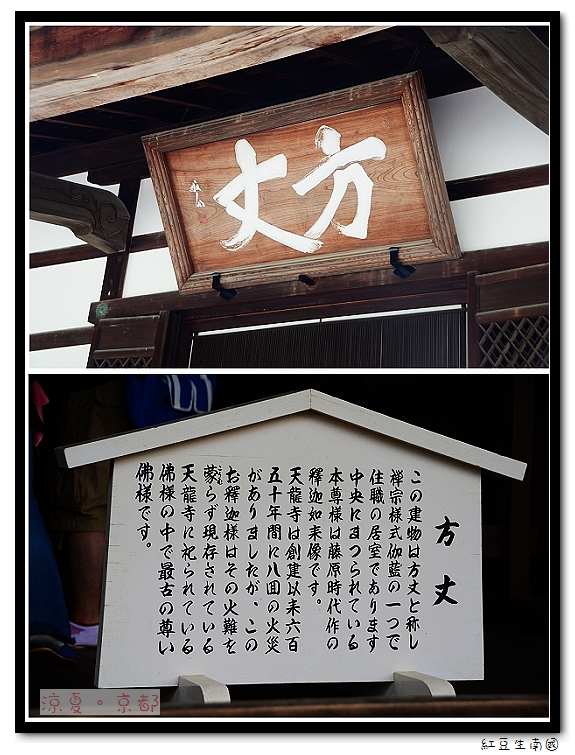 方丈
方丈
この建物は方丈と称し
禅宗様式伽藍の一つで
住職の居室であります
中央にまつられている
本尊様は藤原時代作の
釋迦如来像です。
天龍寺は創建以来六百
五十年間に八回の火災
がありましたが、この
お釋迦様はその火難を
蒙らず現存されている
天龍寺に祀られている
佛様の中で最古の尊い
佛様です。
涼夏。京都
紅豆生南國